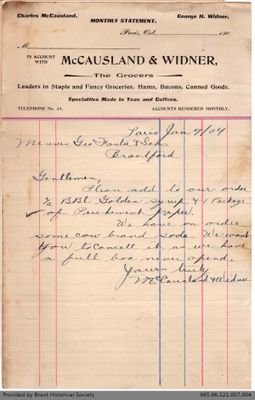 Charles McCausland. MONTHLY STATEMENT. George H. Widner.
Paris, Ont. 190
M
IN ACCOUNT WITH
McCAUSLAND & WIDNER,
The Grocers
Leaders in Staple and Fancy Groceries, Hams, Bacons, Canned Goods.
Specialties Made in Teas and Coffees.
TELEPHONE No. ACCOUNTS RENDERED MONTHLY.
Paris Jan 9/04
Messrs Geo Foster & Son
Brantford
Gentlemen,
Please add to our order
½ BBl Golden syrup & 1 Package
of Parchement paper.
We have on order
some cow brand soda. We want
you to cancell it as we have
a full box never opend.
Yours truly
McCausland & Widner
Provided by Brant Historical Society
985.86.121.007.004